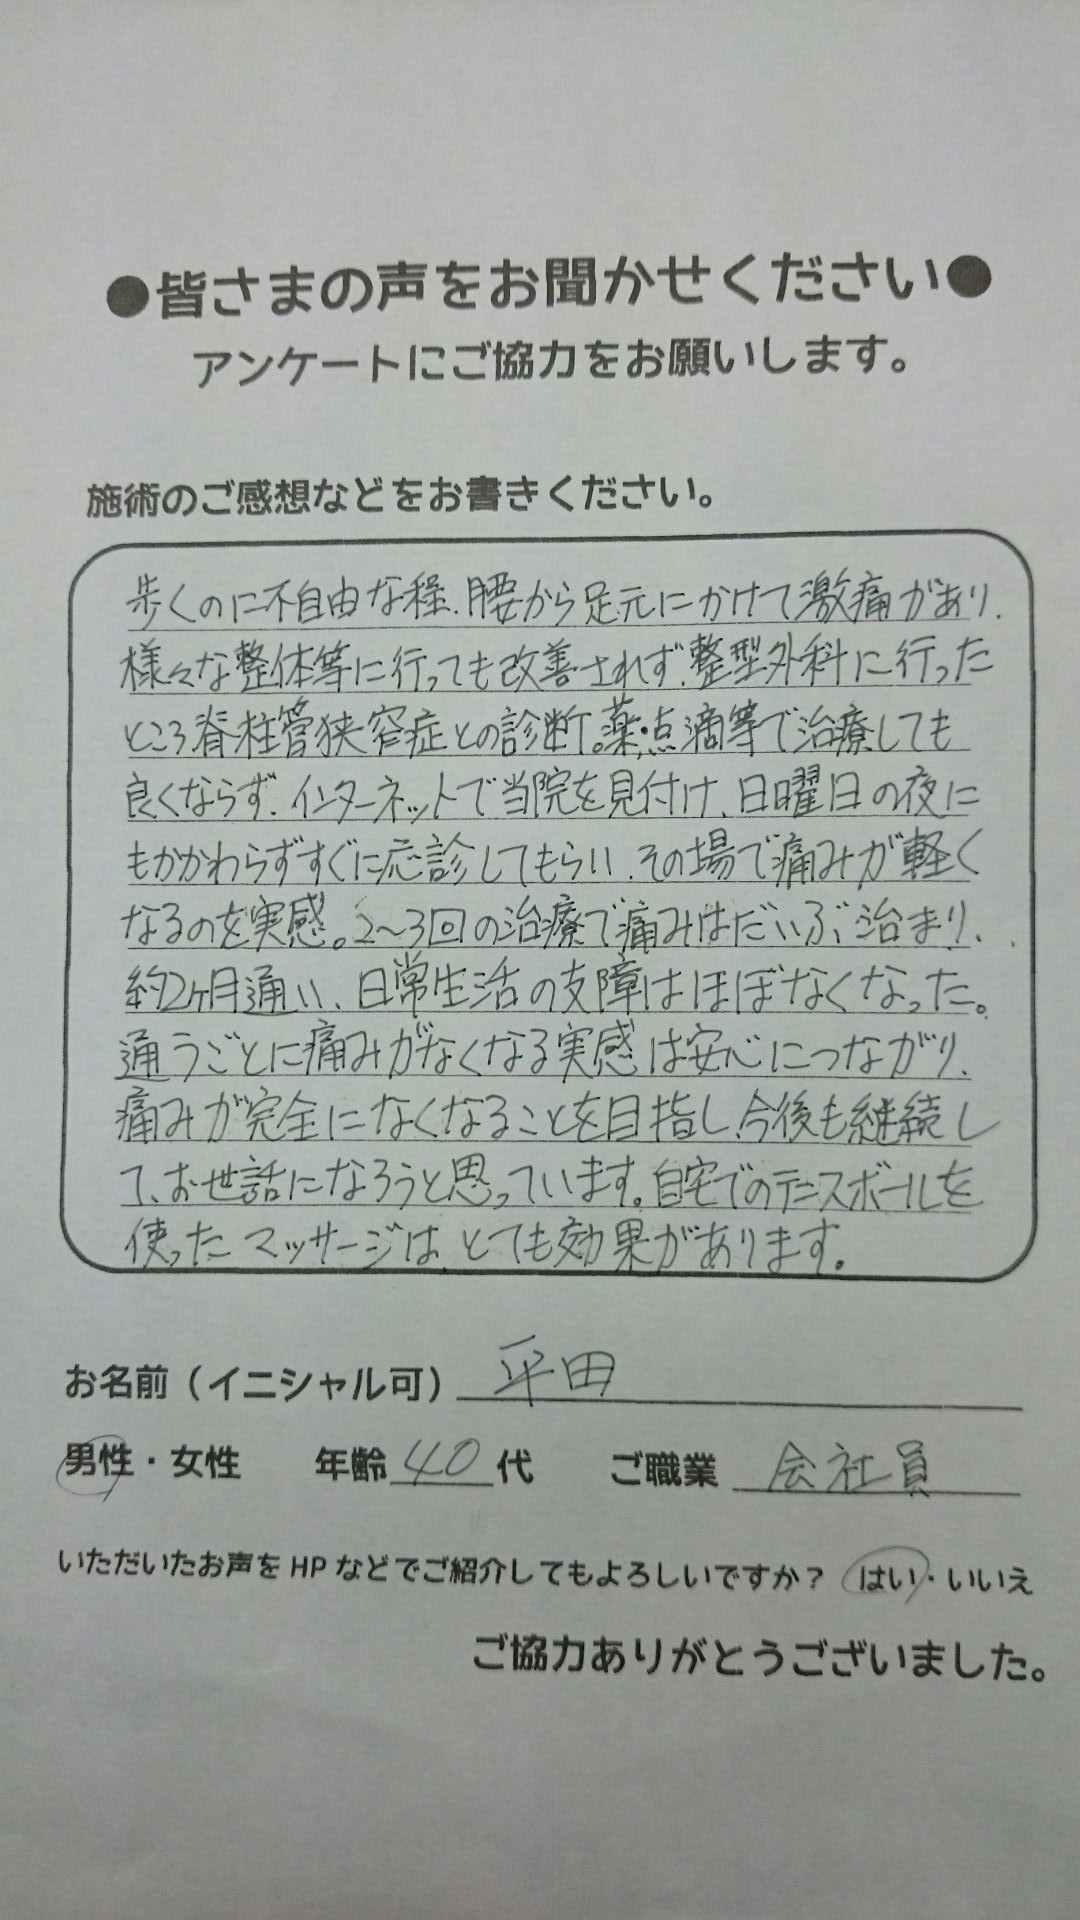 ●皆さまの声をお聞かせください●
アンケートにご協力をお願いします。
施術のご感想などをお書きください。
歩くのに不自由な程、腰から足元にかけて激痛があり、
様々な整体等に行っても改善されず、整型外科に行った
ところ脊柱管狭窄症との診断。薬・点滴等で治療しても
良くならず、インターネットで当院を見付け、日曜日の夜に
もかかわらずすぐに応診してもらい、その場で痛みが軽く
なるのを実感。2〜3回の治療で痛みはだいぶ治まり、
約2ヶ月通い、日常生活の支障はほぼなくなった。
通うごとに痛みがなくなる実感は安心につながり、
痛みが完全になくなることを目指し、今後も継続し
て、お世話になろうと思っています。自宅でのテニスボールを
使ったマッサージは、とても効果があります。
お名前（イニシャル可） 平田
男性・女性 年齢 40 代 ご職業 会社員
いただいたお声をHPなどでご紹介してもよろしいですか？ はい・いいえ
ご協力ありがとうございました。